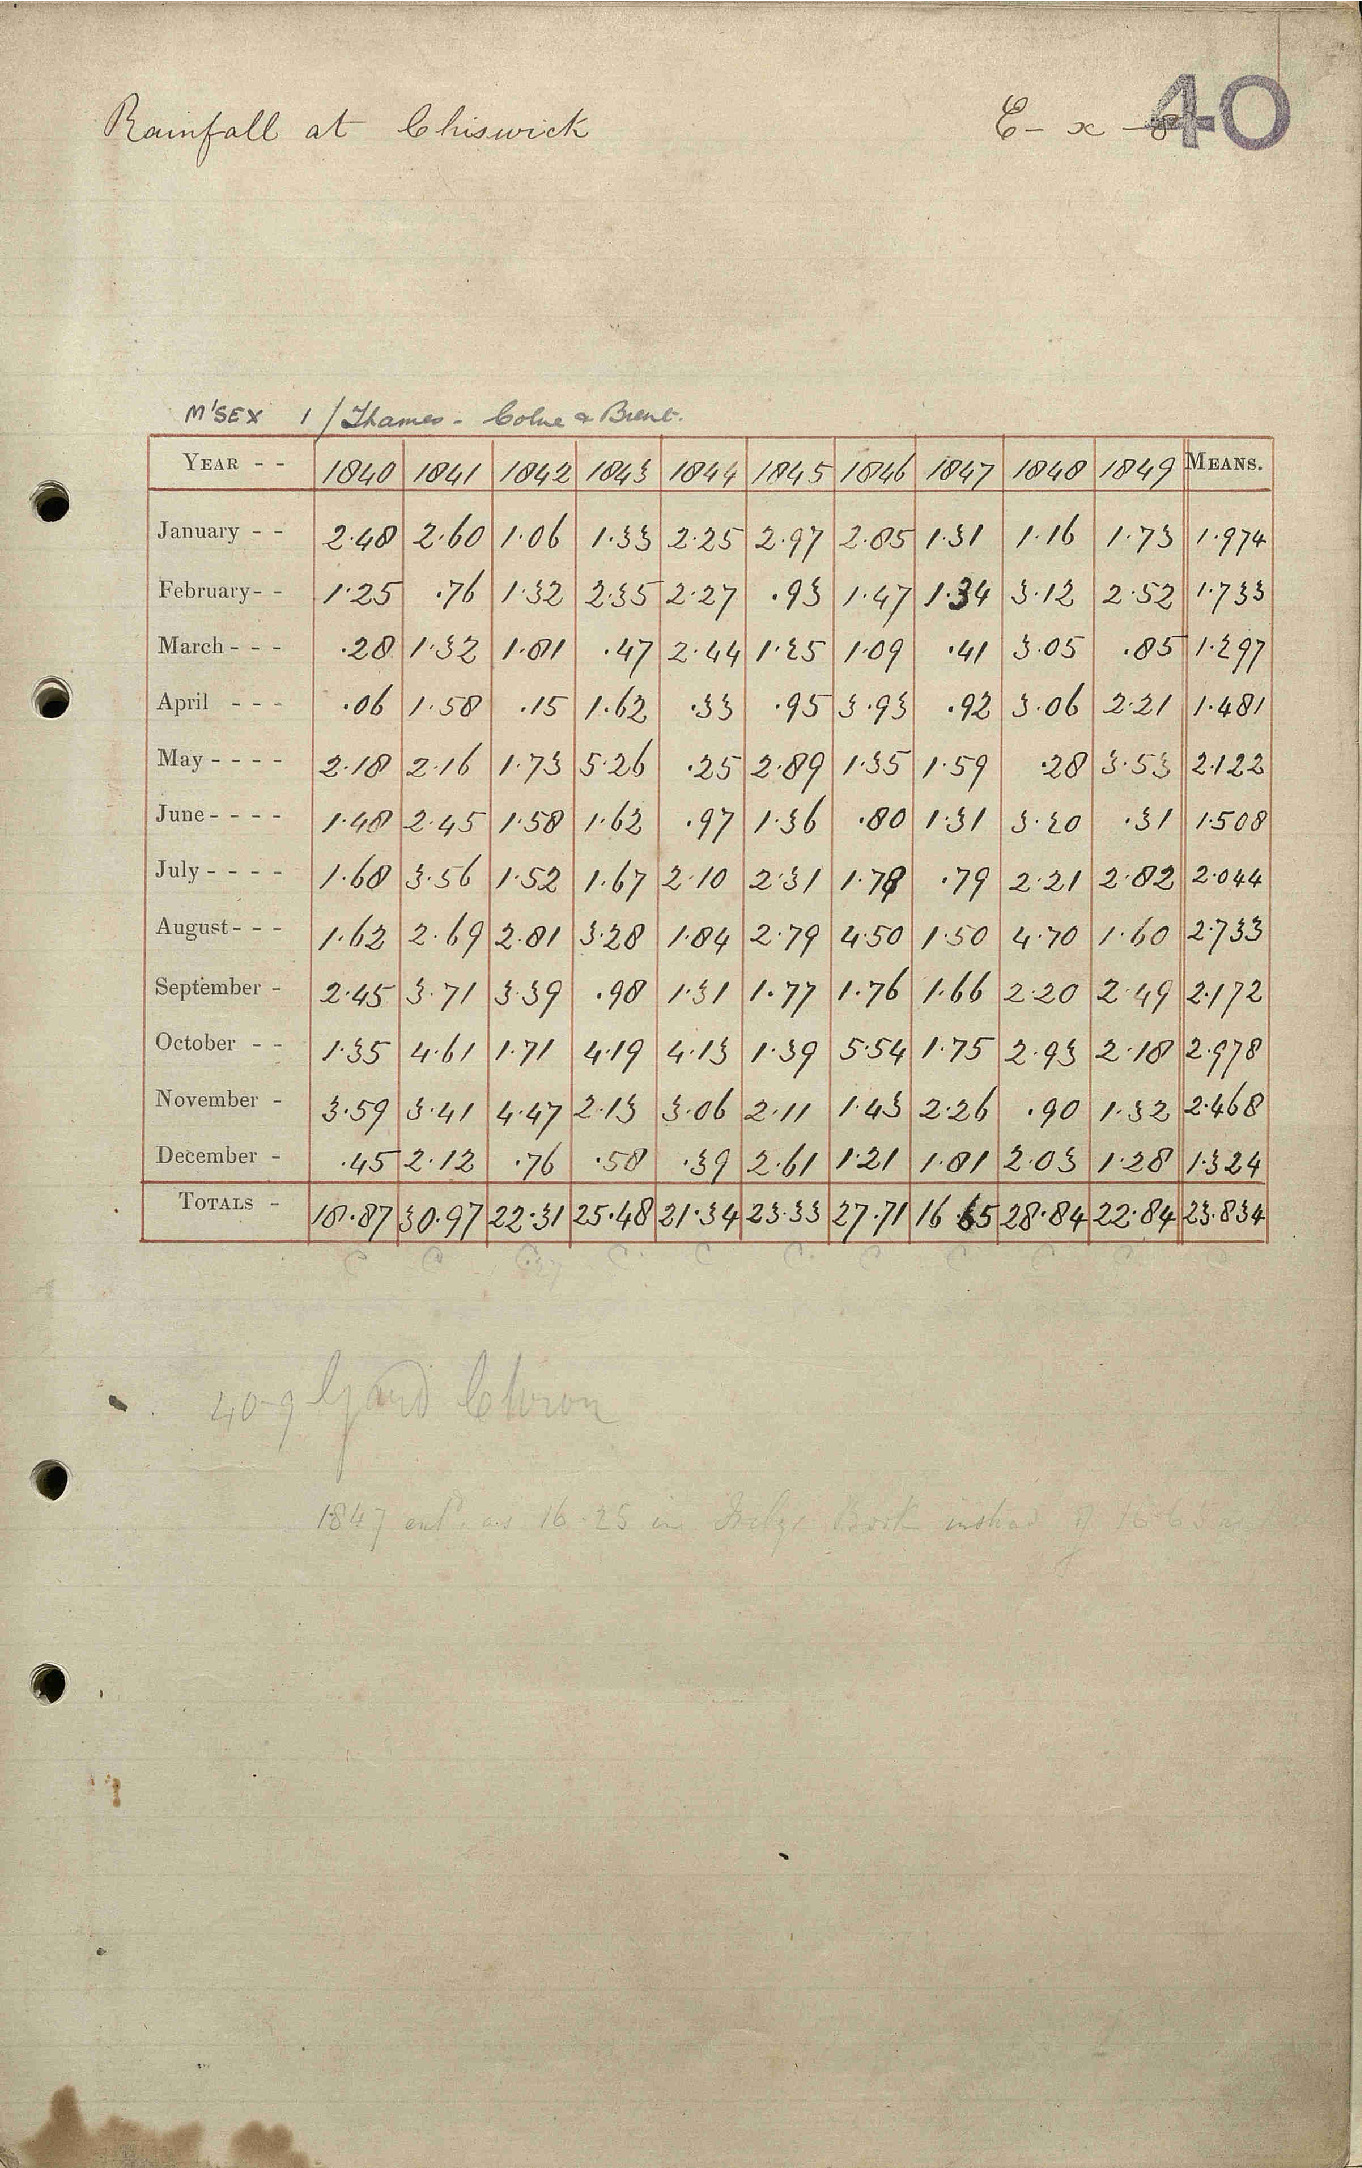 Rainfall at Chiswick E - x - 8 40
M'SEX 1 / Thames - Colne & Brent.
YEAR - - 1840 1841 1842 1843 1844 1845 1846 1847 1848 1849 MEANS.
January - - 2.48 2.60 1.06 1.33 2.25 2.97 2.85 1.31 1.16 1.73 1.974
February - - 1.25 .76 1.32 2.35 2.27 .93 1.47 1.34 3.12 2.52 1.733
March - - - .28 1.32 1.81 .47 2.44 1.25 1.09 .41 3.05 .85 1.297
April - - - .06 1.58 .15 1.62 .33 .95 3.93 .92 3.06 2.21 1.481
May - - - - 2.18 2.16 1.73 5.26 .25 2.89 1.35 1.59 .28 3.53 2.122
June - - - - 1.48 2.45 1.58 1.62 .97 1.36 .80 1.31 3.20 .31 1.508
July - - - - 1.68 3.56 1.52 1.67 2.10 2.31 1.78 .79 2.21 2.82 2.044
August - - - 1.62 2.69 2.81 3.28 1.84 2.79 4.50 1.50 4.70 1.60 2.733
September - 2.45 3.71 3.39 .98 1.31 1.77 1.76 1.66 2.20 2.49 2.172
October - - 1.35 4.61 1.71 4.19 4.13 1.39 5.54 1.75 2.93 2.18 2.978
November - 3.59 3.41 4.47 2.13 3.06 2.11 1.43 2.26 .90 1.32 2.468
December - .45 2.12 .76 .58 .39 2.61 1.21 1.81 2.03 1.28 1.324
TOTALS - 18.87 30.97 22.31 25.48 21.34 23.33 27.71 16.65 28.84 22.84 23.834
40-9 Gard Chron
1847 entd. as 16.25 in Book instead of 16.65